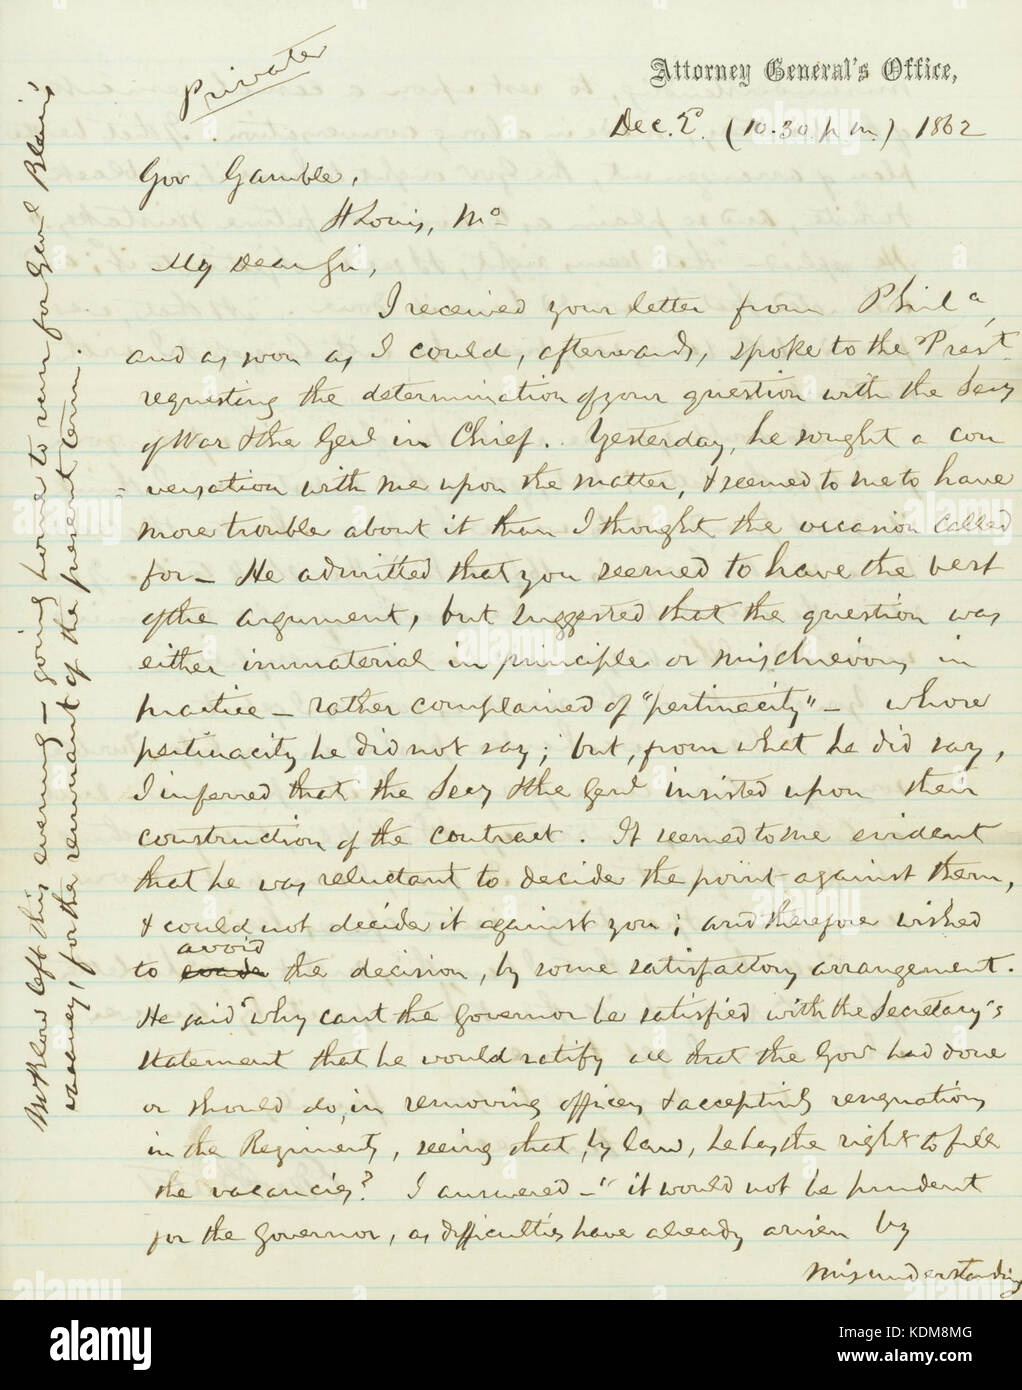 Private
Attorney General's Office,
Dec. 2d. (10.30 p m.) 1862
Gov Gamble,
St Louis, Mo
My Dear Sir,
I received your letter from Phila,
and as soon as I could, afterwards, spoke to the Prest
requesting the determination of your question with the Secy
of War & the Genl in Chief. Yesterday, he sought a con
=versation with me upon the matter, & seemed to me to have
more trouble about it than I thought the occasion called
for— He admitted that you seemed to have the best
of the argument, but suggested that the question was
either immaterial in principle or mischievous in
practice— rather complained of "pertinacity"— whose
pertinacity he did not say; but, from what he did say,
I inferred that the Secy & the Genl insisted upon their
construction of the contract. It seemed to me evident
that he was reluctant to decide the point against them,
& could not decide it against you; and therefore wished
avoid
to evade the decision, by some satisfactory arrangement.
He said "why cant the Governor be satisfied with the Secretary's
statement that he would ratify all that the Govr had done
or should do, in removing officers & accepting resignations
in the Regiments, seeing that, by law, he has the right to fill
the vacancies? I answered—"it would not be prudent
for the Governor, as difficulties have already arisen by
misunderstanding
Mr Blow left this evening— going home to run for Genl Blair's
vacancy, for the remnant of the present term.
alamy
Image ID: KDM8MG
www.alamy.com